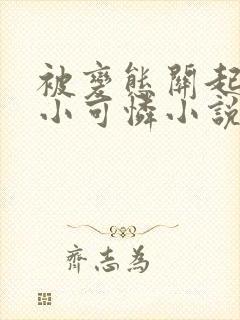 被變態關起
小可憐小說
齊志為